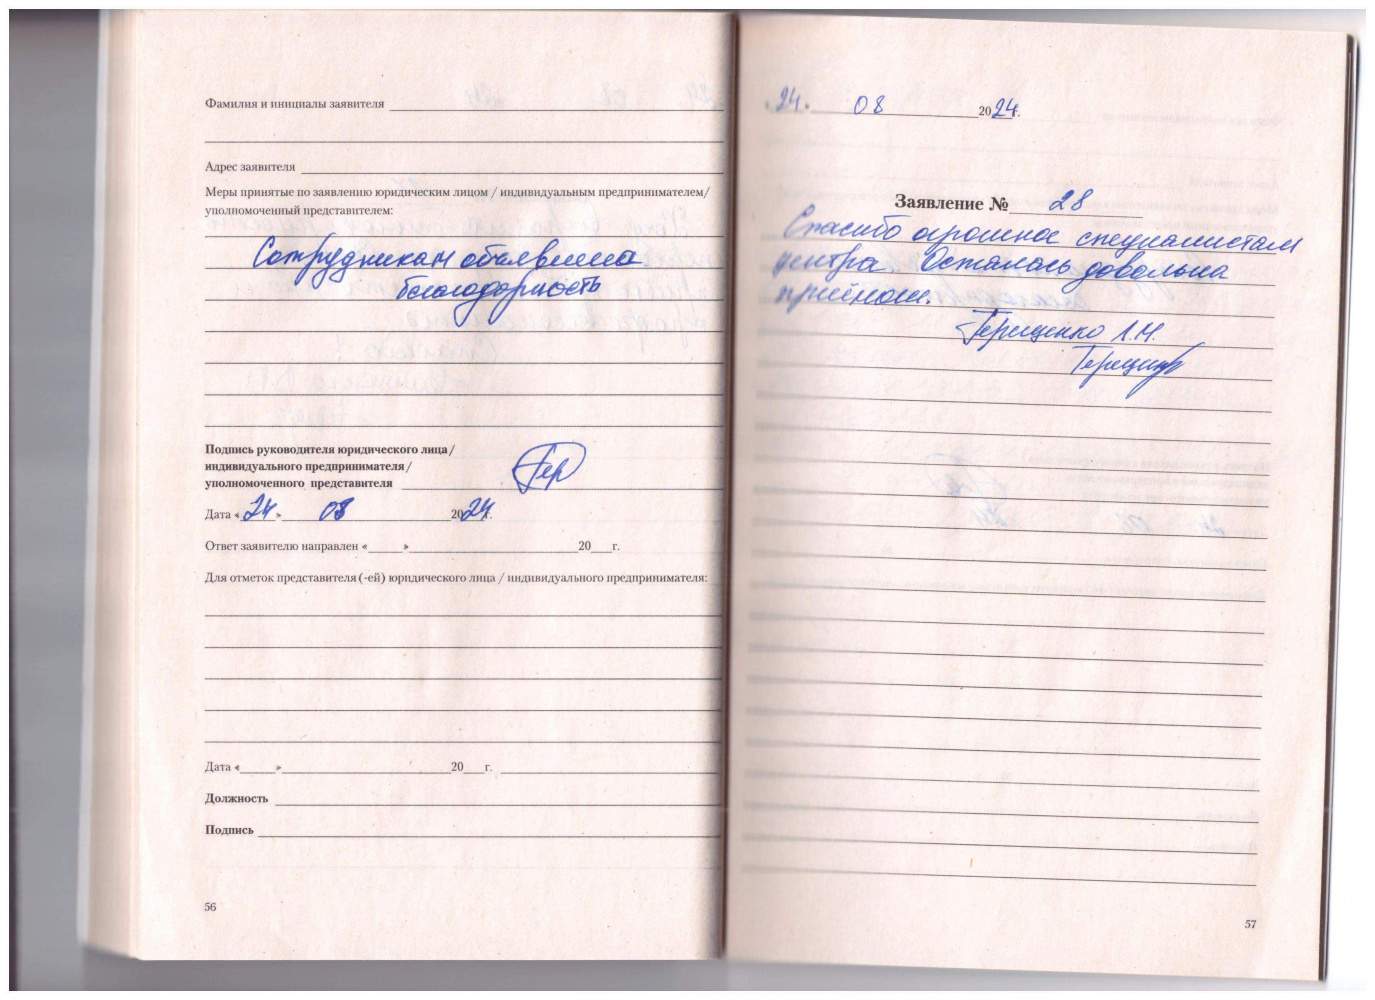 Фамилия и инициалы заявителя
Адрес заявителя
Меры принятые по заявлению юридическим лицом / индивидуальным предпринимателем/
уполномоченный представителем:
Сотрудникам объявлена
благодарность
Подпись руководителя юридического лица/
индивидуального предпринимателя/
уполномоченного представителя
Дата «24» 08 2024г.
Ответ заявителю направлен «____»____20___г.
Для отметок представителя (-ей) юридического лица / индивидуального предпринимателя:
Дата «____»____20___г.
Должность
Подпись
56
24. 08 2024г.
Заявление № 28
Спасибо огромное специалистам
центра Осталась довольна
приёмом.
Терещенко Л.М.
57